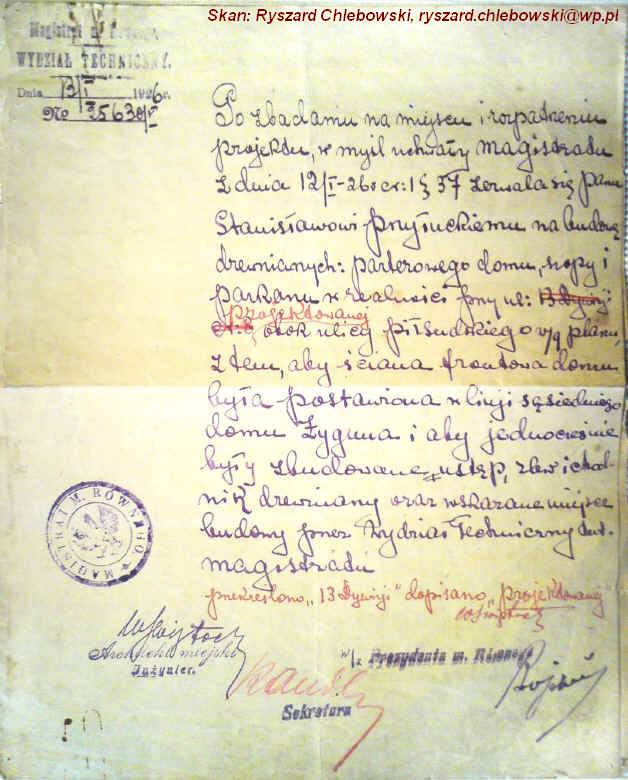 Skan: Ryszard Chlebowski, ryszard.chlebowski@wp.pl
Magistrat m. Równego
WYDZIAŁ TECHNICZNY.
Dnia 13/I 1926 r.
No
Po zbadaniu na miejscu i rozpatrzeniu
projektu, w myśl uchwały magistradu
z dnia 12/I-26 § 37 zezwala się panu
Stanisławowi Przyłuckiemu na budowę
drewnianych: parterowego domu, szopy i
parkanu w realności przy ul: 13 Dywizji
projektowanej
obok ulicy Piłsudskiego w/g planu,
z tem, aby ściana frontowa domu
była postawiona w linji sąsiedniego
domu Zyguna i aby jednocześnie
były zbudowane ustęp,
drewniany oraz wskazane miejsce
budowy przez Wydział Techniczny
magistradu
MAGISTRAT M. RÓWNEGO
przekreślono „13 Dywizji" dopisano „projektowanej"
Architekt miejski
Inżynier.
w/z Prezydenta m. Równego
Sekretarz